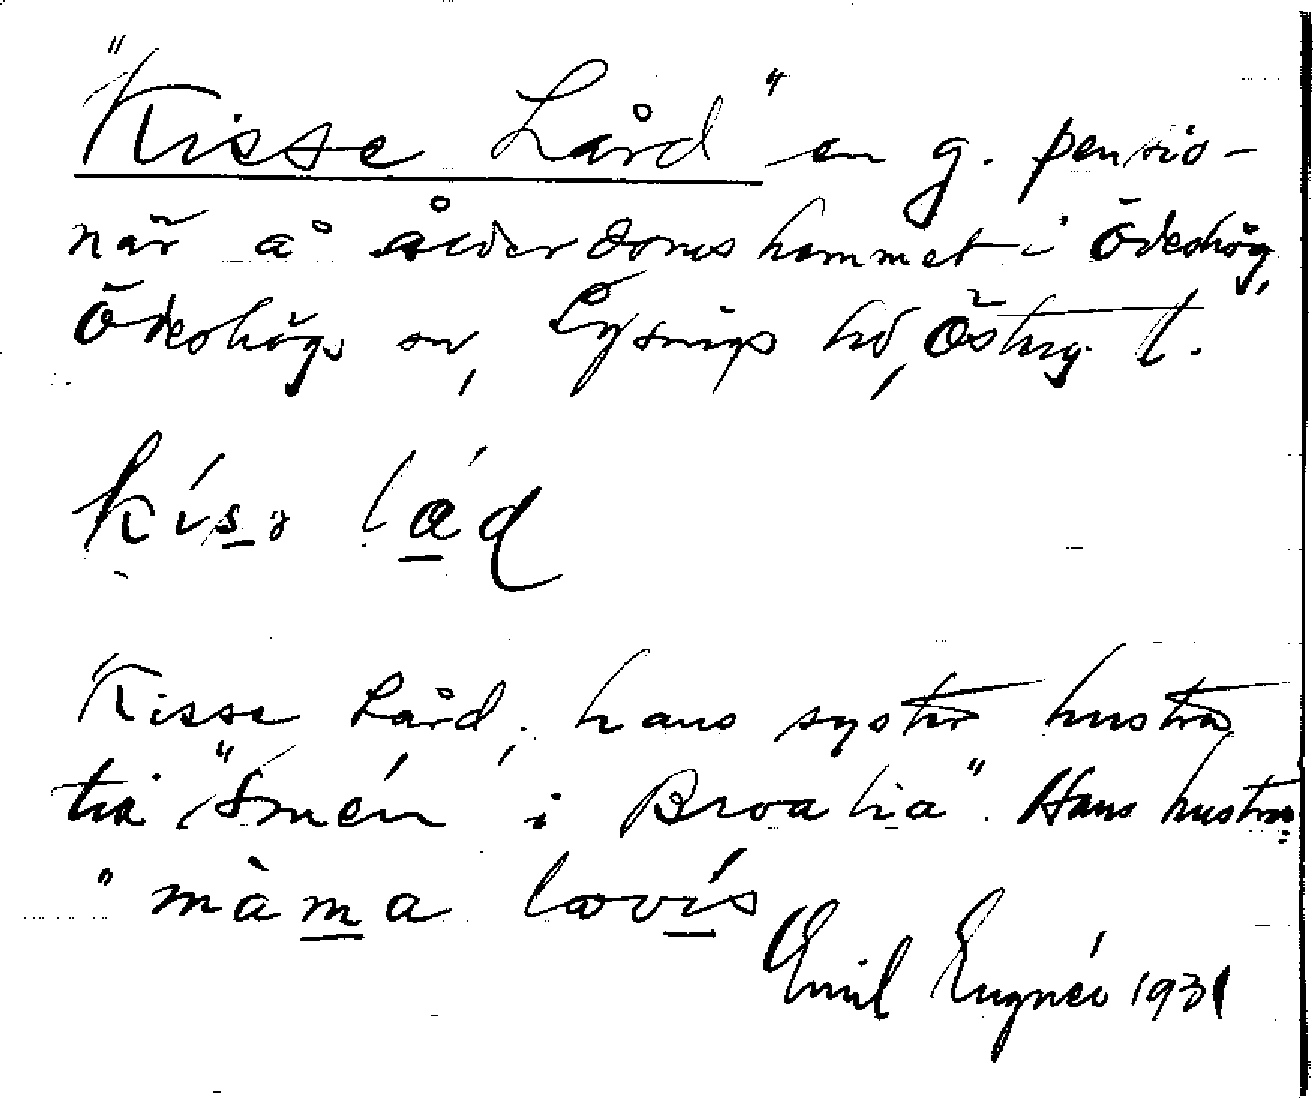 "Kisse Lård" en g. pensio-
när å ålderdomshemmet i Ödeshög,
Ödeshögs sn, Lysings hd, Österg. l.
kísə lád
"Kisse Lård, hans syster hustru
till "Smén i Broatia". Hans hustru:
" màma lovís
Emil Eugnér 1931